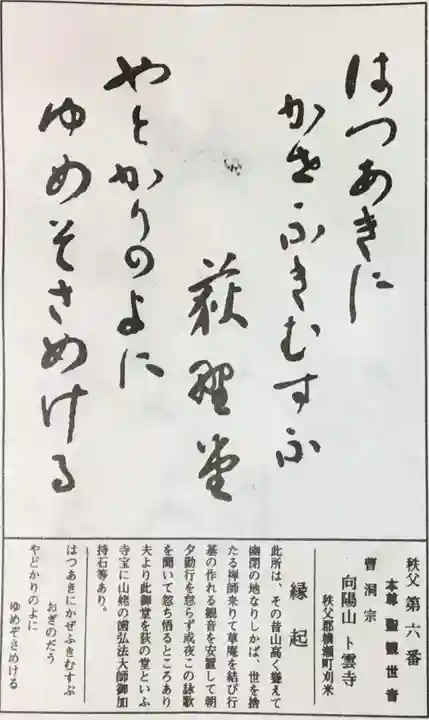 はつあきに
かせふきむすふ
荻野堂
やとかりのよに
ゆめそさめける
秩父 第六番
本尊 聖観世音
曹洞宗
向陽山 卜雲寺
秩父郡横瀬町刈米
縁起
此所は、その昔山高く聳えて
幽閉の地なりしかば、世を捨
たる禅師来りて草庵を結び行
基の作れる観音を安置して朝
夕勤行を怠らず或夜この詠歌
を聞いて忽ち悟るところあり
夫より此御堂を荻の堂といふ
寺宝に山姥の歯弘法大師御加
持石等あり。
はつあきにかぜふきむすぶ
おぎのだう
やどかりのよに
ゆめぞさめける